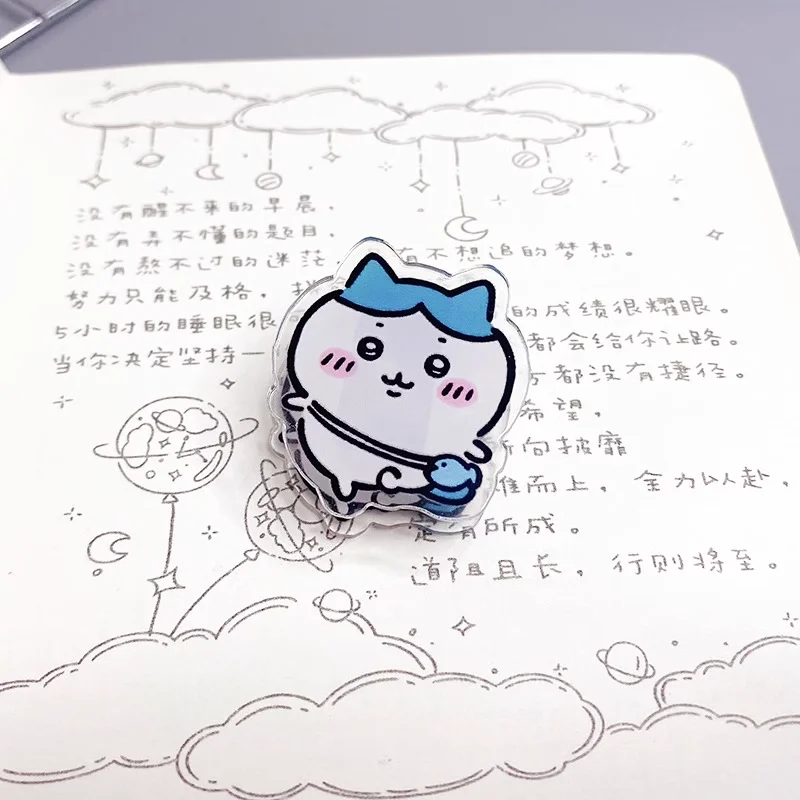 没有醒不来的早晨，
没有弄不懂的题目，
没有熬不过的迷茫 有不想追的梦想。
努力只能及格， 的成绩很耀眼。
5小时的睡眠很 都会给你让路。
当你决定坚持一 都没有捷径。
希望，
所向披靡
难而上，全力以赴，
定有所成。
道阻且长，行则将至。